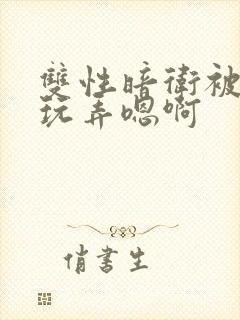 雙性暗衛被
玩弄嗯啊
俏書生